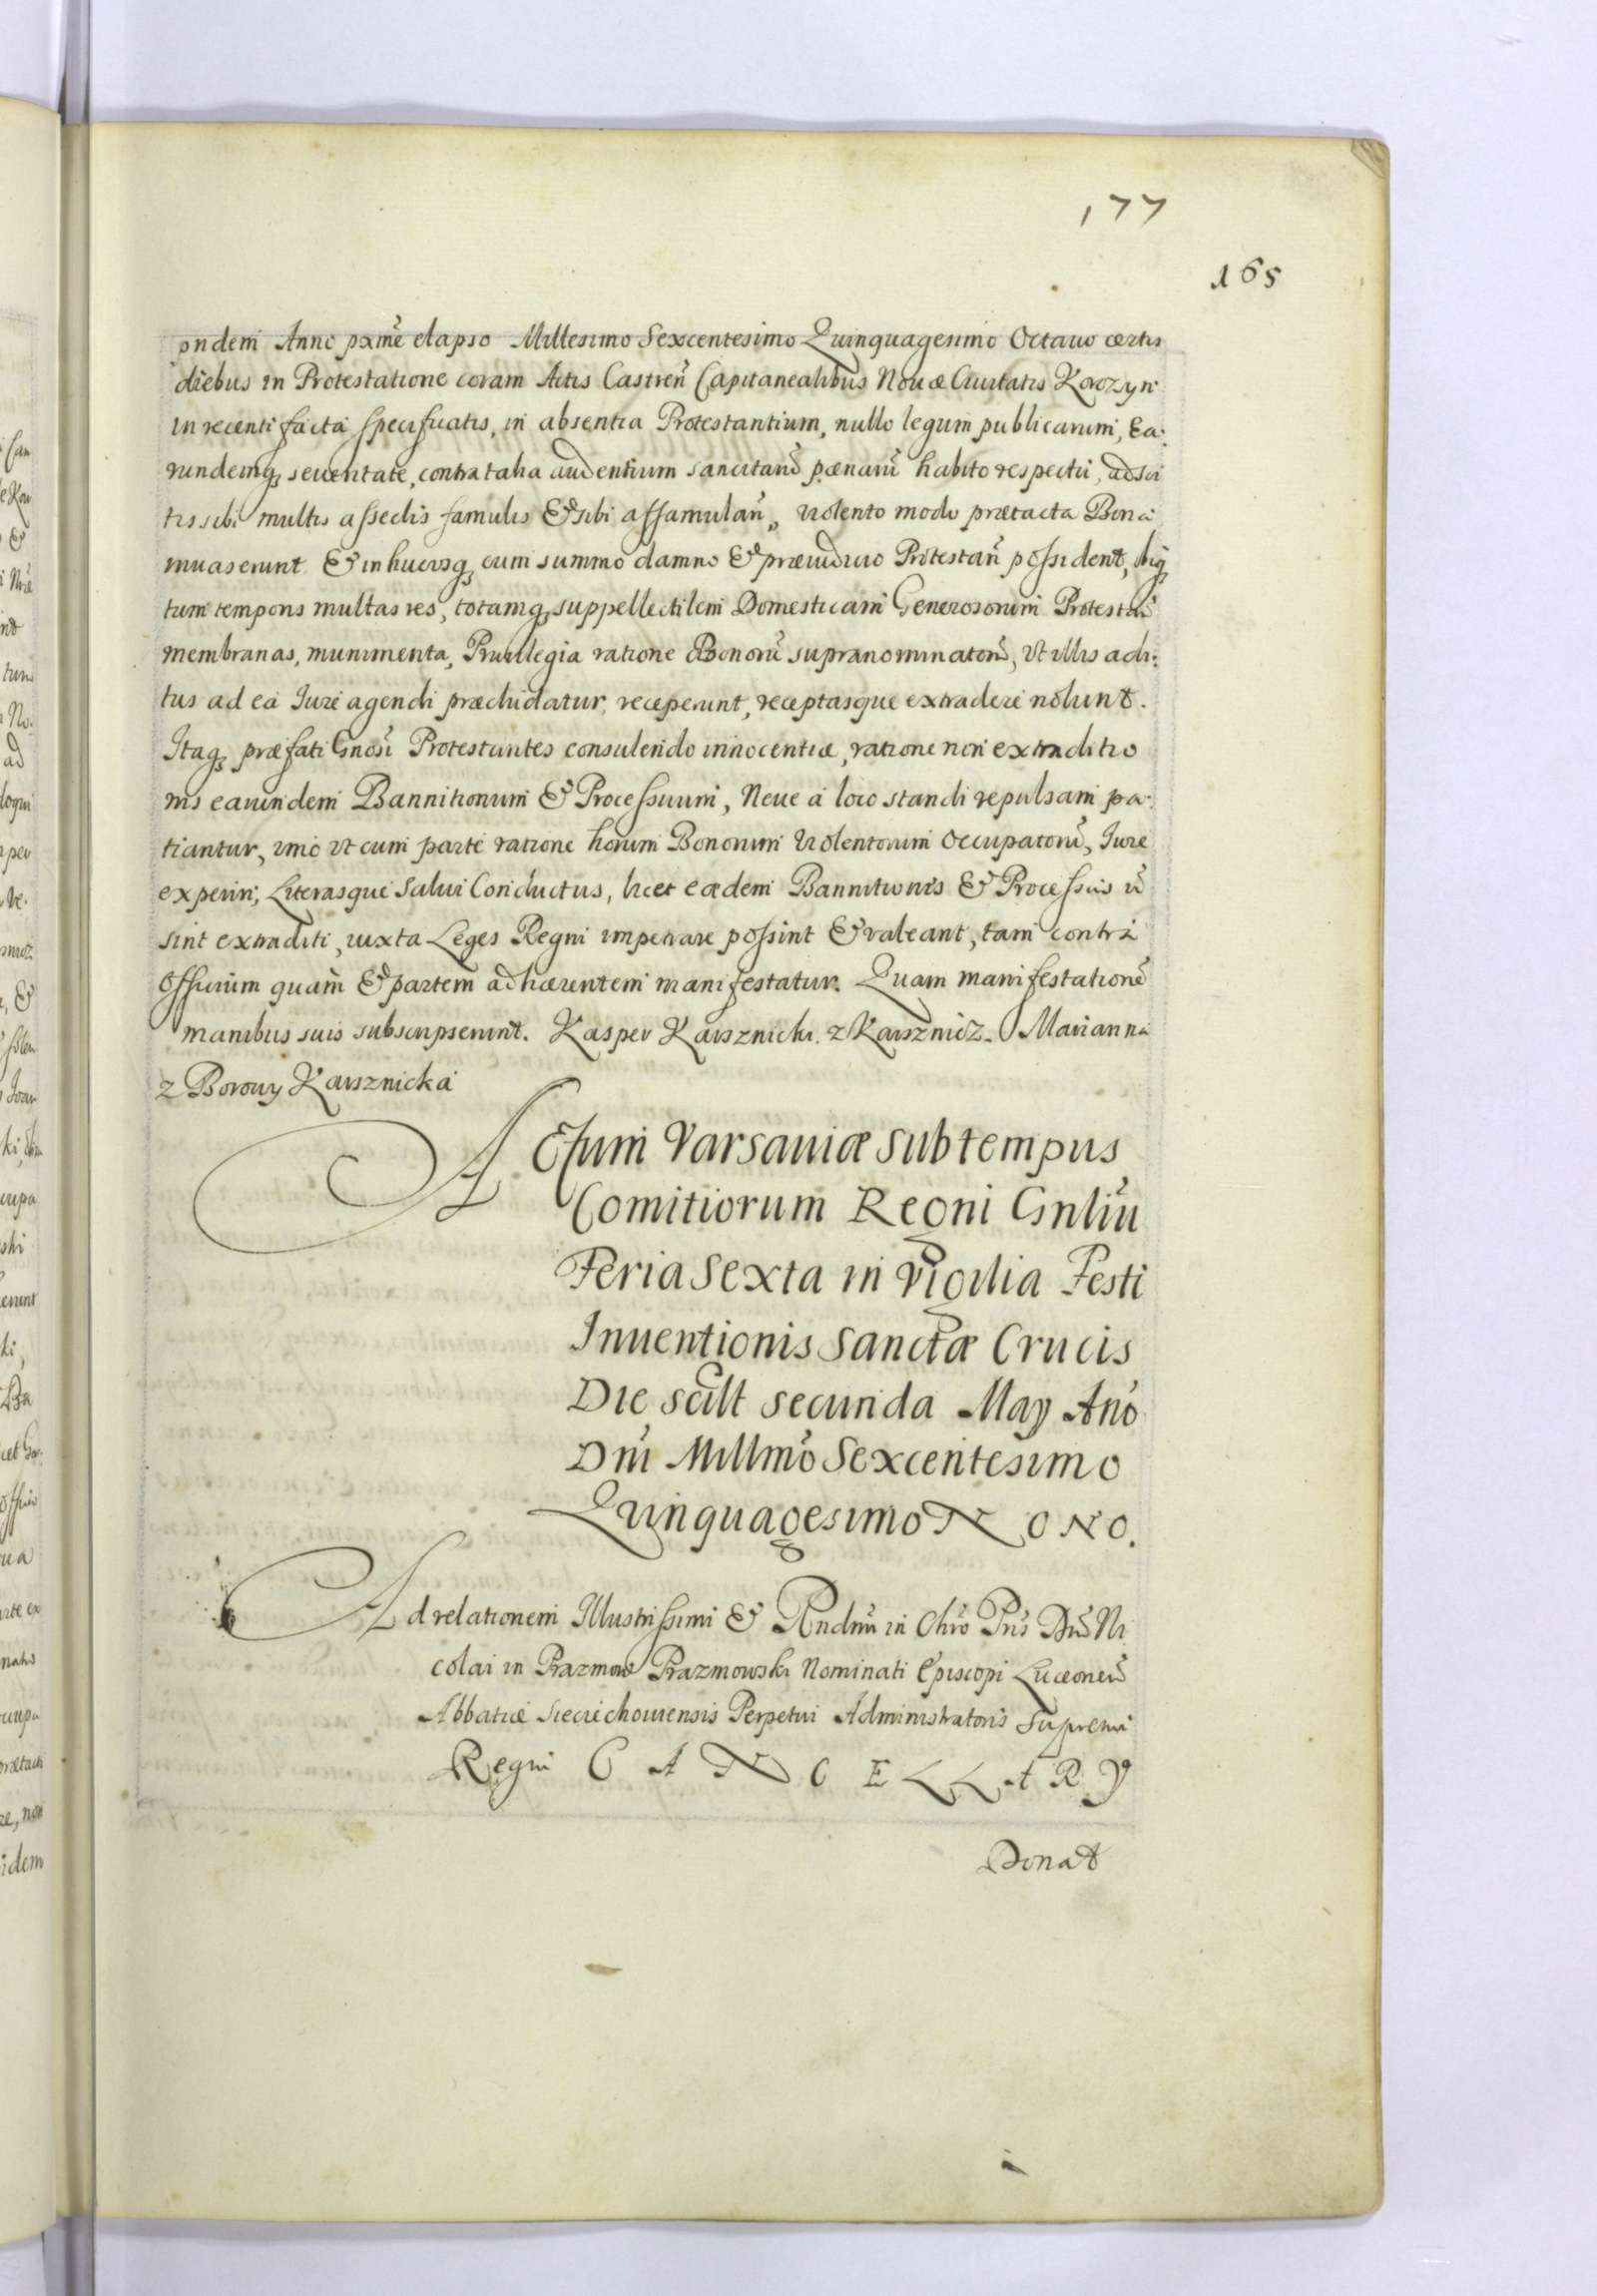 177
165
pndem Anno pxmẽ elapso Millesimo Sexcentesimo Quinquagesimo Octauo certis
diebus in Protestatione coram Actis Castreñ Capitanealibus Nouæ Ciuitatis Korozyn
in recenti facta specificatis, in absentia Protestantium, nullo legum publicarum, Ea:
rundemq₃ seueritate, contra talia audentium sancitarũ pænarũ habito respectu, adsci
tis sibi multis assedis famulis & sibi assamulañ, violento modo prætacta Bona
inuaserunt & in hucusq₃ cum summo damno & præiudicio Protestañ possident,
tum temporis multas res, totamq₃ suppellectilem Domesticam Generosorum Protestañ
membranas, munimenta, Priuilegia ratione Bonorũ supranominatorũ, Vt illis adi:
tus ad ea Iure agendi præcludatur, receperunt, receptasque extradere nolunt.
Itaq₃ præfati Gnosi Protestantes consulendo innocentiæ, ratione non extraditio
nis earundem Bannitionum & Processuum, Neue a loco standi repulsam pa:
tiantur, imo vt cum parte ratione horum Bonorum Violentorum Occupatorũ, Iure
experiri, Literasque Salui Conductus, licet eædem Bannitionis & Processus ñ
sint extraditi, iuxta Leges Regni impetrare possint & valeant, tam contra
Officium quam & partem adhærentem manifestatur. Quam manifestationẽ
manibus suis subscripserunt. Kasper Karsznicki z Karsznicz. Marianna
z Borowy Karsznicka
Actum Varsauiæ sub tempus
Comitiorum Regni Gnliũ
Feria Sexta in Vigilia Festi
Inuentionis Sanctæ Crucis
Die scilt secunda May Anõ
Dni Millmõ Sexcentesimo
Quinquagesimo NONO.
Ad relationem Illustrissimi & Rndmi in Chrõ Pris Dni Ni
colai in Prazmow Prazmowski Nominati Episcopi Luceoneñ
Abbatiæ Sieciechouiensis Perpetui Administratoris Supremi
Regni CANCELLARY
Donat